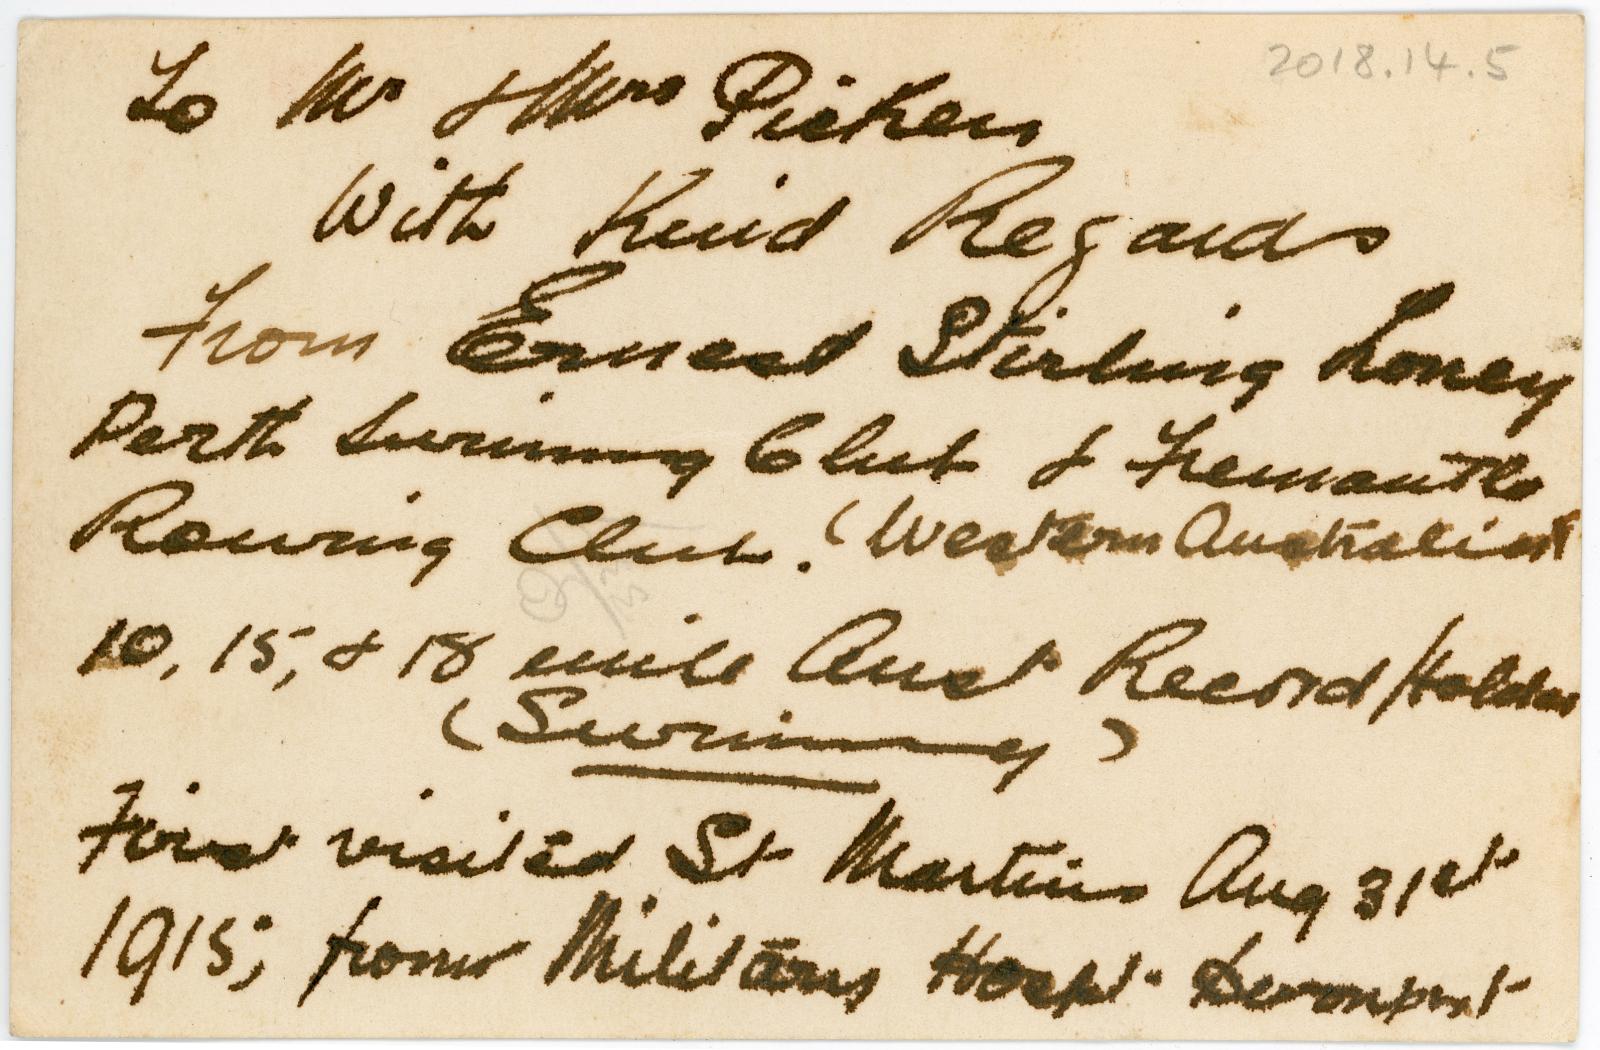 2018.14.5
To Mr & Mrs Picken
With Kind Regards
From Ernest Stirling Loney
Perth Swimming Club & Fremantle
Rowing Club. (Western Australian
10, 15, & 18 mile Aust Record Holder
(Swimming)
First visited St Martins Aug 31st
1915; from Military Hospt Devonport